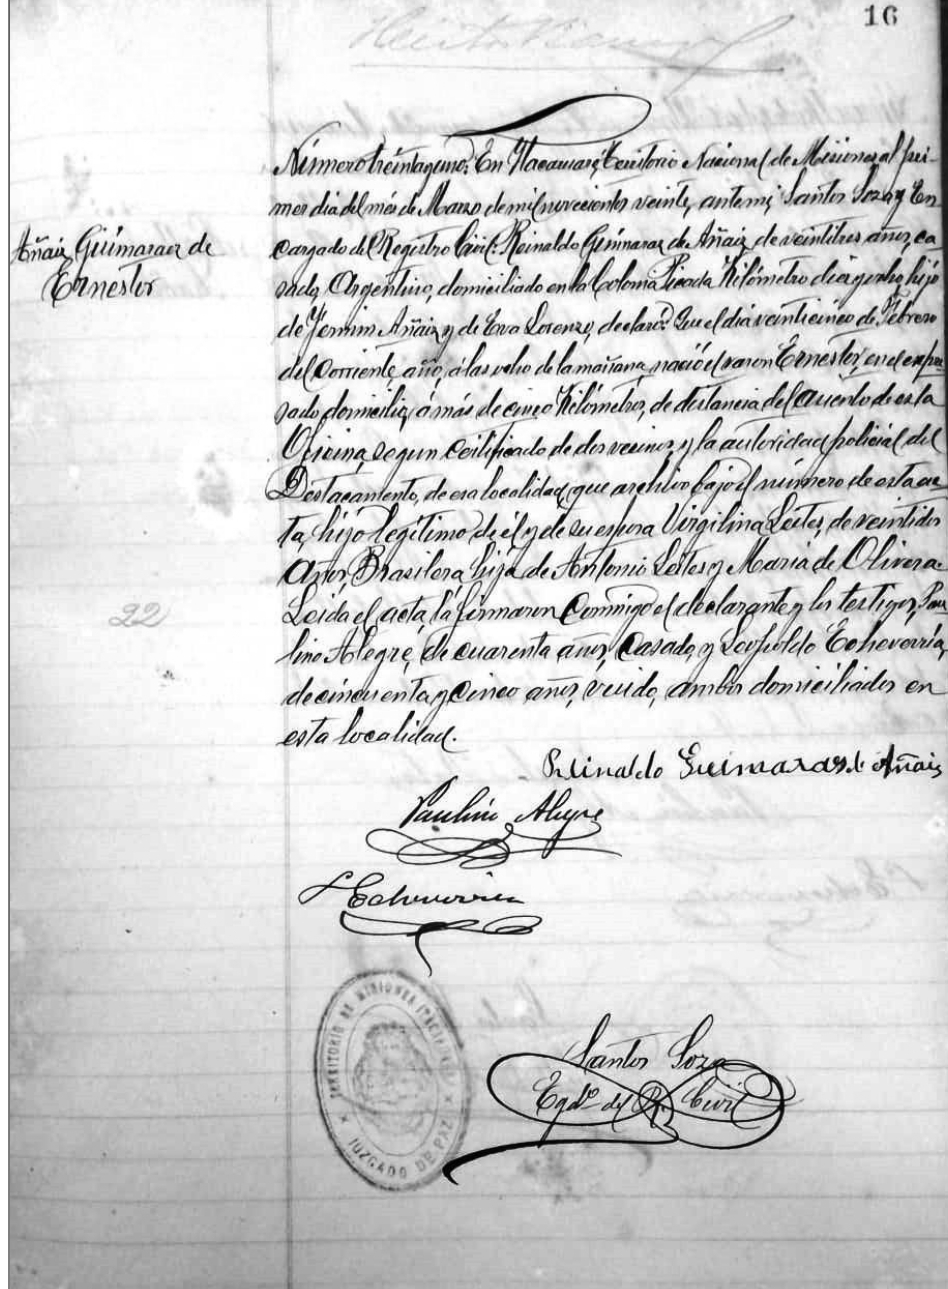 16
Añaiz Guimaraez de
Ernestor
22
Número treinta y uno: En Itacaruaré, Territorio Nacional de Misiones al pri-
mer dia del més de Marzo de mil novecientos veinte, ante mi Santos Soza y En
cargado del Registro Civil: Reinaldo Guimaraz de Añaiz, de veintitres años, ca-
sado, Argentino, domiciliado en la Colonia Picada Kilómetro diez y ocho hijo
de Añaiz y de Eva Lorenzo, declaró: Que el dia veinticinco de Febrero
del Corriente, año, á las ocho de la mañana, nació el varon Ernestor, en el expre
sado domicilio, á más de cinco Kilómetros, de distancia del asiento de esta
Oficina, segun Certificado de dos vecinos, y la autoridad policial del
Destacamento, de esa localidad, que archivo bajo el número de esta ac-
ta, hijo legítimo de él y de su esposa Virgilina Leites, de veintidos
años, Brasilera hija de Antonio Leites y Maria de Olivera.
Leida el acta, la firmaron Conmigo el declarante y los testigos, Pau-
lino Alegre, de cuarenta años, Casado, y Leopoldo Echeverría,
de cincuenta y Cinco años, viudo, ambos domiciliados en
esta localidad.
Reinaldo Guimaraes de Añais
Paulino Alegre
L Echeverria
TERRITORIO DE MISIONES
JUZGADO DE PAZ
Santos Soza
Egdo del R. Civil